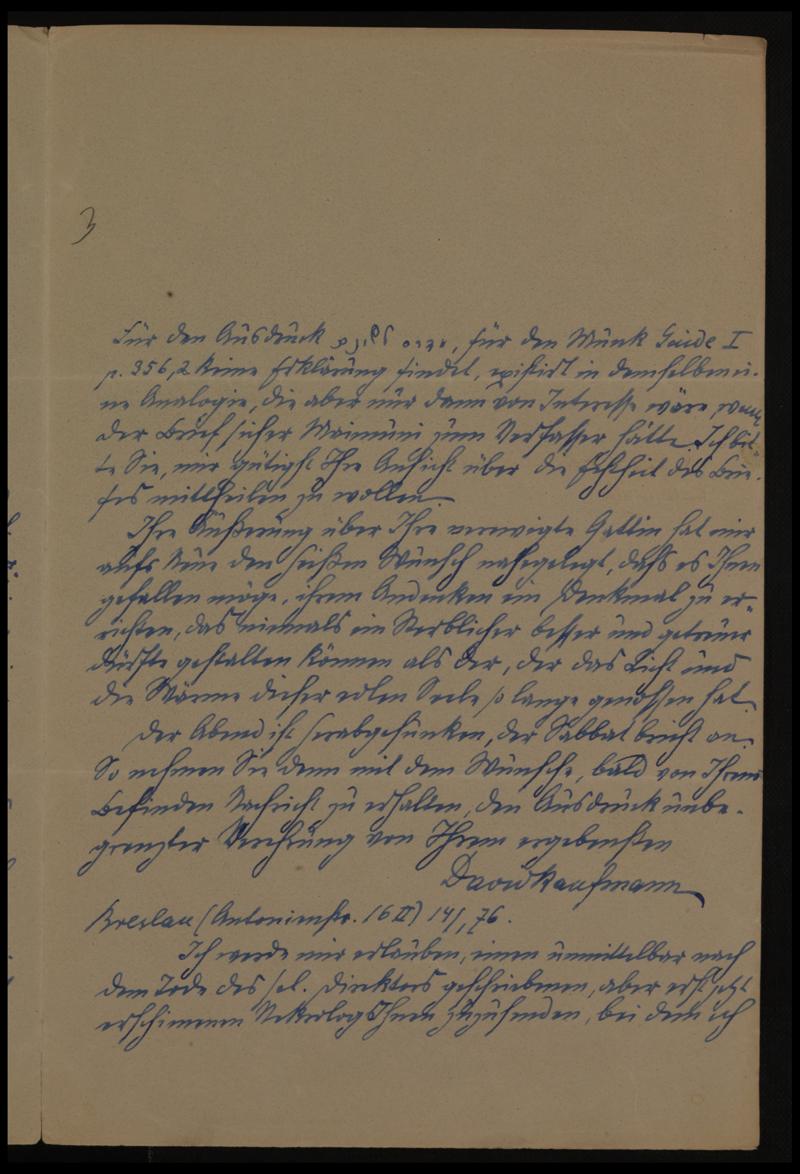 3
Für den Ausdruck, für den Munk Guide I
p. 356, 2 keine Erklärung findet, existirt in demselben ei-
ne Analogie, die aber nur dann von Interesse wäre, wenn
der Brief sicher Maimuni zum Verfasser hätte. Ich bit-
te Sie, mir gütigst Ihre Ansicht über die Echtheit des Brie-
fes mittheilen zu wollen.
Ihre Äußerung über Ihre verewigte Gattin hat mir
aufs Neue den heißen Wunsch nahegelegt, daß es Ihnen
gefallen möge, ihrem Andenken ein Denkmal zu er-
richten, das niemals ein Sterblicher besser und getreuer
dürfte gestalten können als der, der das Licht und
die Wärme dieser edlen Seele so lange genossen hat.
Der Abend ist herabgesunken, der Sabbat bricht an.
So nehmen Sie denn mit dem Wunsche, bald von Ihrem
Befinden Nachricht zu erhalten, den Ausdruck unbe-
grenzter Verehrung von Ihrem ergebensten
David Kaufmann
Breslau (Antonienstr. 16 II) 14/1 76.
Ich werde mir erlauben, einen unmittelbar nach
dem Tode des sel. Direktors geschriebenen, aber erst jetzt
erschienenen Nekrolog Ihnen zuzusenden, bei dem ich